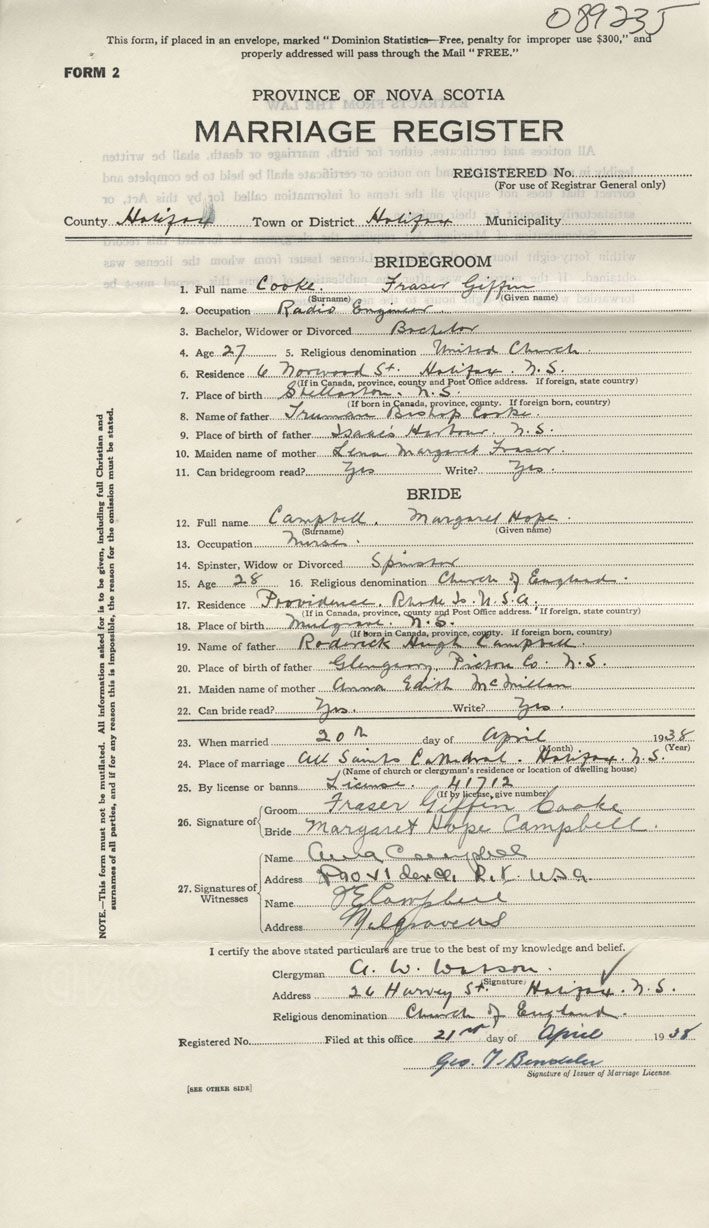 089235
This form, if placed in an envelope, marked "Dominion Statistics—Free, penalty for improper use $300," and
properly addressed will pass through the Mail "FREE."
FORM 2
PROVINCE OF NOVA SCOTIA
MARRIAGE REGISTER
REGISTERED No.
(For use of Registrar General only)
County Halifax Town or District Halifax Municipality
BRIDEGROOM
1. Full name Cooke. Fraser Giffin
(Surname) (Given name)
2. Occupation Radio Engineer
3. Bachelor, Widower or Divorced Bachelor
4. Age 27 5. Religious denomination United Church
6. Residence 6 Norwood St. Halifax. N.S.
(If in Canada, province, county and Post Office address. If foreign, state country)
7. Place of birth Stellarton. N.S.
(If born in Canada, province, county. If foreign born, country)
8. Name of father Truman Bishop Cooke.
9. Place of birth of father Isaacs Harbour. N.S.
10. Maiden name of mother Lena Margaret Fraser.
11. Can bridegroom read? Yes Write? Yes.
BRIDE
12. Full name Campbell. Margaret Hope.
(Surname) (Given name)
13. Occupation Nurse.
14. Spinster, Widow or Divorced Spinster
15. Age 28 16. Religious denomination Church of England.
17. Residence Providence. Rhode Is. U.S.A.
(If in Canada, province, county and Post Office address. If foreign, state country)
18. Place of birth Mulgrave. N.S.
(If born in Canada, province, county. If foreign born, country)
19. Name of father Roderick Hugh Campbell.
20. Place of birth of father Glengarry, Pictou Co. N.S.
21. Maiden name of mother Anna Edith McMillan
22. Can bride read? Yes. Write? Yes.
23. When married 20th day of April 1938
(Month) (Year)
24. Place of marriage All Saints Cathedral. Halifax. N.S.
(Name of church or clergyman's residence or location of dwelling house)
25. By license or banns License. 41712
(If by license, give number)
26. Signature of Groom Fraser Giffin Cooke
Bride Margaret Hope Campbell.
27. Signatures of Witnesses
Name Campbell
Address Providence, R.I. U.S.A.
Name Campbell
Address Mulgrave NS
I certify the above stated particulars are true to the best of my knowledge and belief.
Clergyman A. W. Watson.
(Signature)
Address 26 Harvey St. Halifax. N.S.
Religious denomination Church of England.
Registered No. Filed at this office 21st day of April 1938
Geo.
Signature of Issuer of Marriage License
[SEE OTHER SIDE]
NOTE.—This form must not be mutilated. All information asked for is to be given, including full Christian and
surnames of all parties, and if for any reason this is impossible, the reason for the omission must be stated.